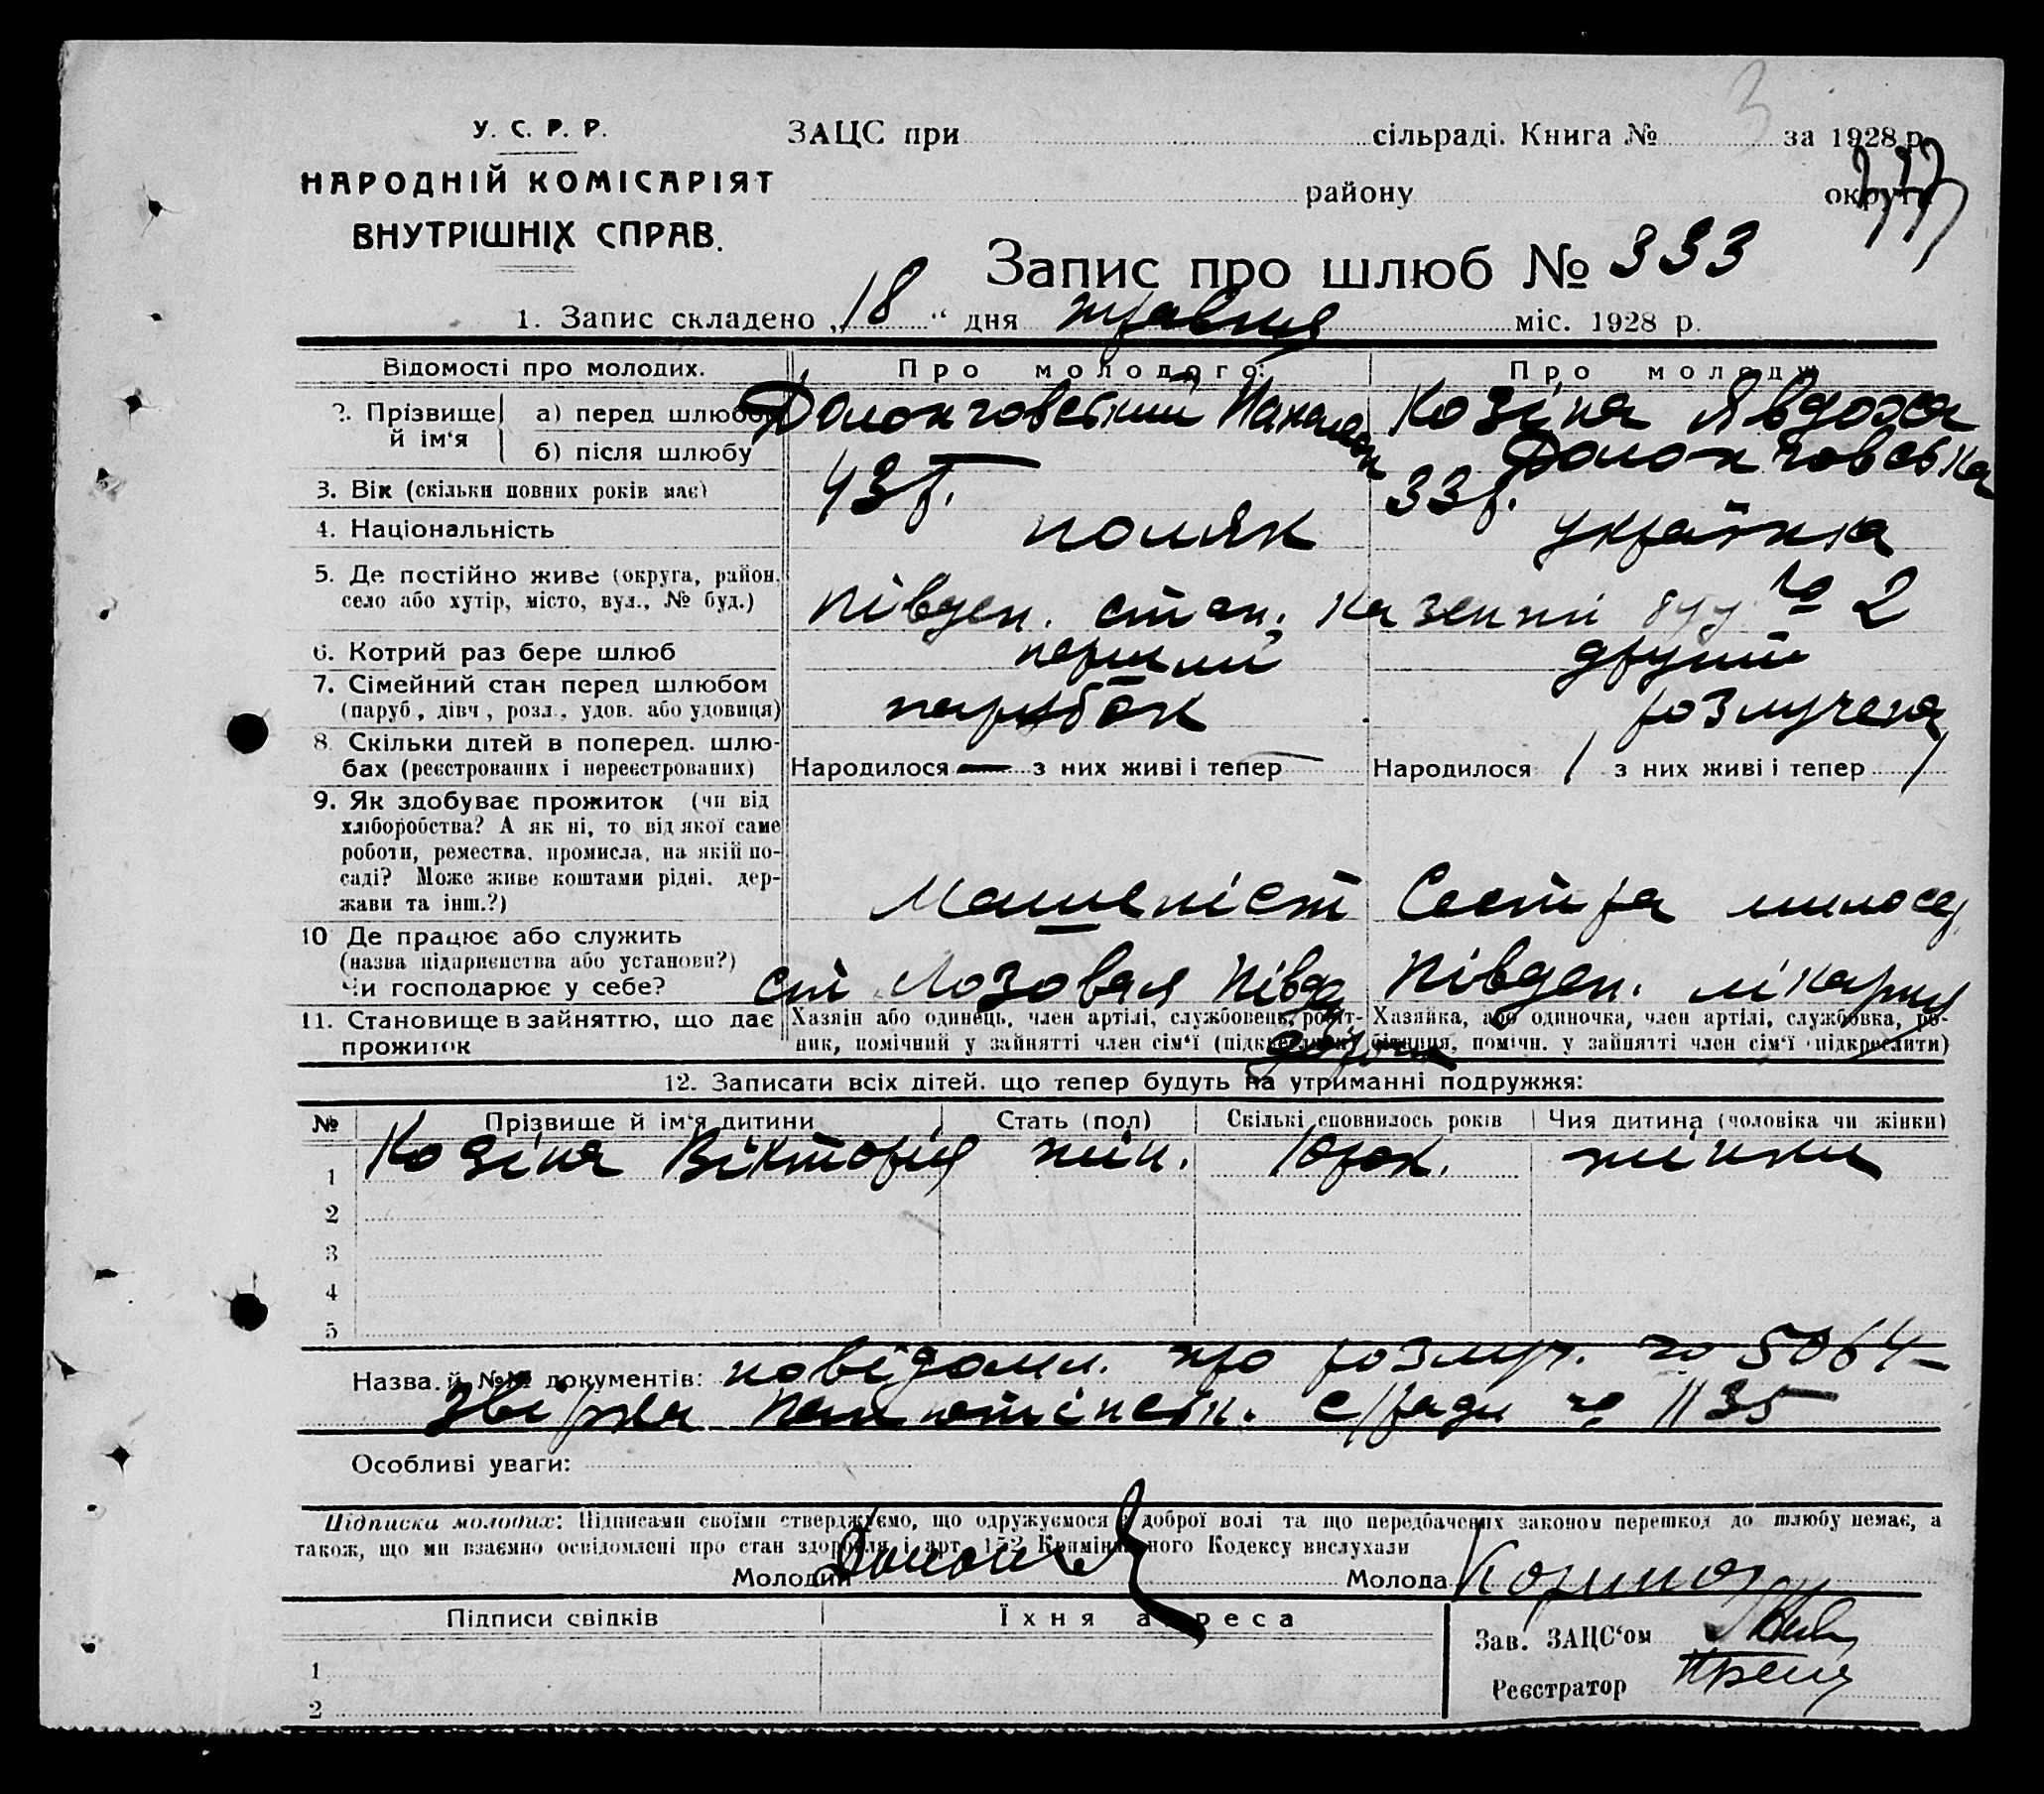 3
У. С. Р. Р.
НАРОДНІЙ КОМІСАРІЯТ
ВНУТРІШНІХ СПРАВ.
ЗАЦС при сільраді. Книга № за 1928 р.
району округи
333
Запис про шлюб № 333
1. Запис складено „18“ дня травня міс. 1928 р.
Відомості про молодих. Про молодого: Про молоду
2. Прізвище й ім'я а) перед шлюбом Козіна Явдоха
б) після шлюбу —
3. Вік (скільки повних років має) 43 р. 33 р.
4. Національність поляк українка
5. Де постійно живе (округа, район, село або хутір, місто, вул., № буд.) Півден. стан. казенний буд № 2
6. Котрий раз бере шлюб перший другий
7. Сімейний стан перед шлюбом (паруб., дівч., розл., удов. або удовиця) парубок розлучена
8. Скільки дітей в поперед. шлюбах (реєстрованих і нереєстрованих) Народилося — з них живі і тепер — Народилося 1 з них живі і тепер 1
9. Як здобуває прожиток (чи від
хліборобства? А як ні, то від якої саме
роботи, ремества, промисла, на якій по-
саді? Може живе коштами рідні, дер-
жави та інш.?) Машеніст Сестра милосер
10 Де працює або служить
(назва підприємства або установи?)
Чи господарює у себе? ст Лозовая Півд Півден. лікарня
11. Становище в зайняттю, що дає прожиток
Хазяїн або одинець, член артілі, службовець, робіт-
ник, помічний у зайнятті член сім'ї (підкреслити)
Хазяйка, або одиночка, член артілі, службовка, ро-
бітниця, помічн. у зайнятті член сім'ї (підкреслити)
12. Записати всіх дітей, що тепер будуть на утриманні подружжя:
№ Прізвище й ім'я дитини Стать (пол) Скількі сповнилось років Чия дитина (чоловіка чи жінки)
1 Козіна Вікторія жін. 10 рок. жінки
2
3
4
5
Назва й №№ документів: повідомл. про розлуч. № 5064
с/ради № 1135
Особливі уваги:
Підписки молодих: Підписами своїми стверджуємо, що одружуємося з доброї волі та що передбачених законом перешкод до шлюбу немає, а
також, що ми взаємно освідомлені про стан здоровля і арт. 152 Кримінального Кодексу вислухали
Молодий Молода
Підписи свідків Їхня адреса
Зав. ЗАЦС'ом
1
Реєстратор
2